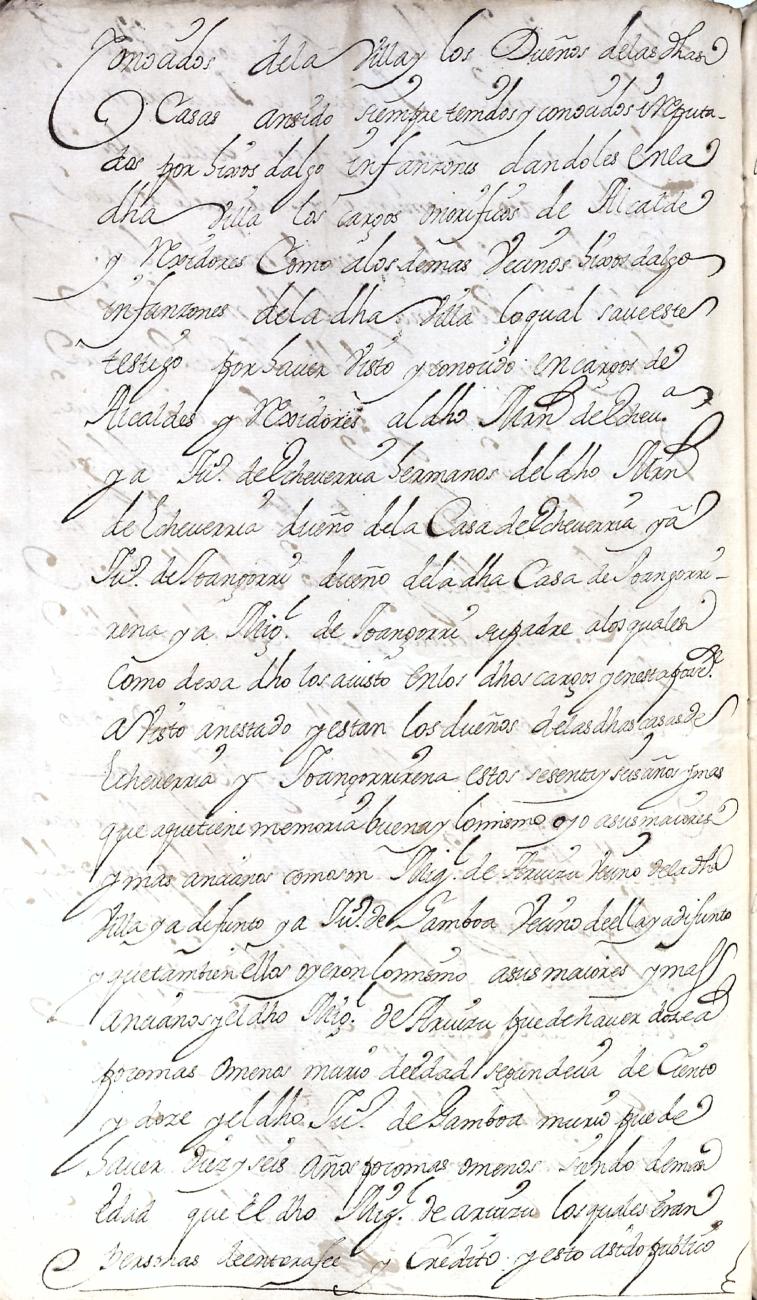 Conoçidos dela Villa y los Dueños delas dhas
Casas ansido siempre tenidos y conoçidos i Reputa-
dos por hixos dalgo infanzones dandoles enla
dha Villa los cargos onorificos de Alcalde
y Rexidores Como alos demas Veçinos hixos dalgo
infanzones dela dha Villa loqual save este
testigo por haver Visto y conoçido en cargos de
Alcaldes y Rexidores al dho Mrn de Echeu.a
ya Ju.o de Echeverria hermanos del dho Mrn
de Echeverria dueño dela Casa de Echeverria ya
Ju.o de Joangorri dueño dela dha Casa de Joangorri-
rena ya Mig.l de Joangorri su padre alos quales
Como dexa dho los avisto enlos dhos cargos y en esta
a Visto anestado y estan los dueños delas dhas casas de
Echeverria y Joangorrirena estos sesenta y seis años y mas
que aquetiene memoria buena y lo mismo oyo asus maiores
y mas ançianos como son Mig.l de Veçino dela dha
Villa ya difunto ya Ju.o de Gamboa Veçino de ella ya difunto
y que tambien ellos oyeron lo mismo asus maiores y mas
ançianos y el dho Mig.l de puede haver doze a
poco mas omenos murio de edad segun deçia de Ciento
y doze y el dho Ju.o de Gamboa murio puede
haver Diez y seis años poco mas omenos siendo de mas
edad que el dho Mig.l de los quales eran
Personas de entera fee y Credito y esto asido publico